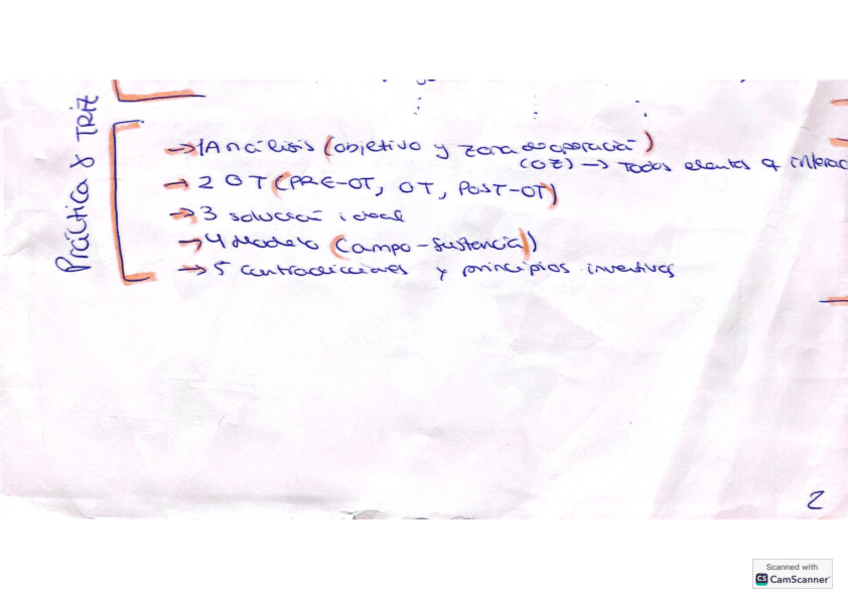 Práctica 8 TRIZ
→ 1 Análisis (objetivo y zona de operación)
(OZ) → Todos elementos q interac
→ 2 OT (PRE-OT, OT, POST-OT)
→ 3 solución ideal
→ 4 Modelo (Campo-Sustancia)
→ 5 contradicciones y principios inventivos
2
Scanned with
CS CamScanner